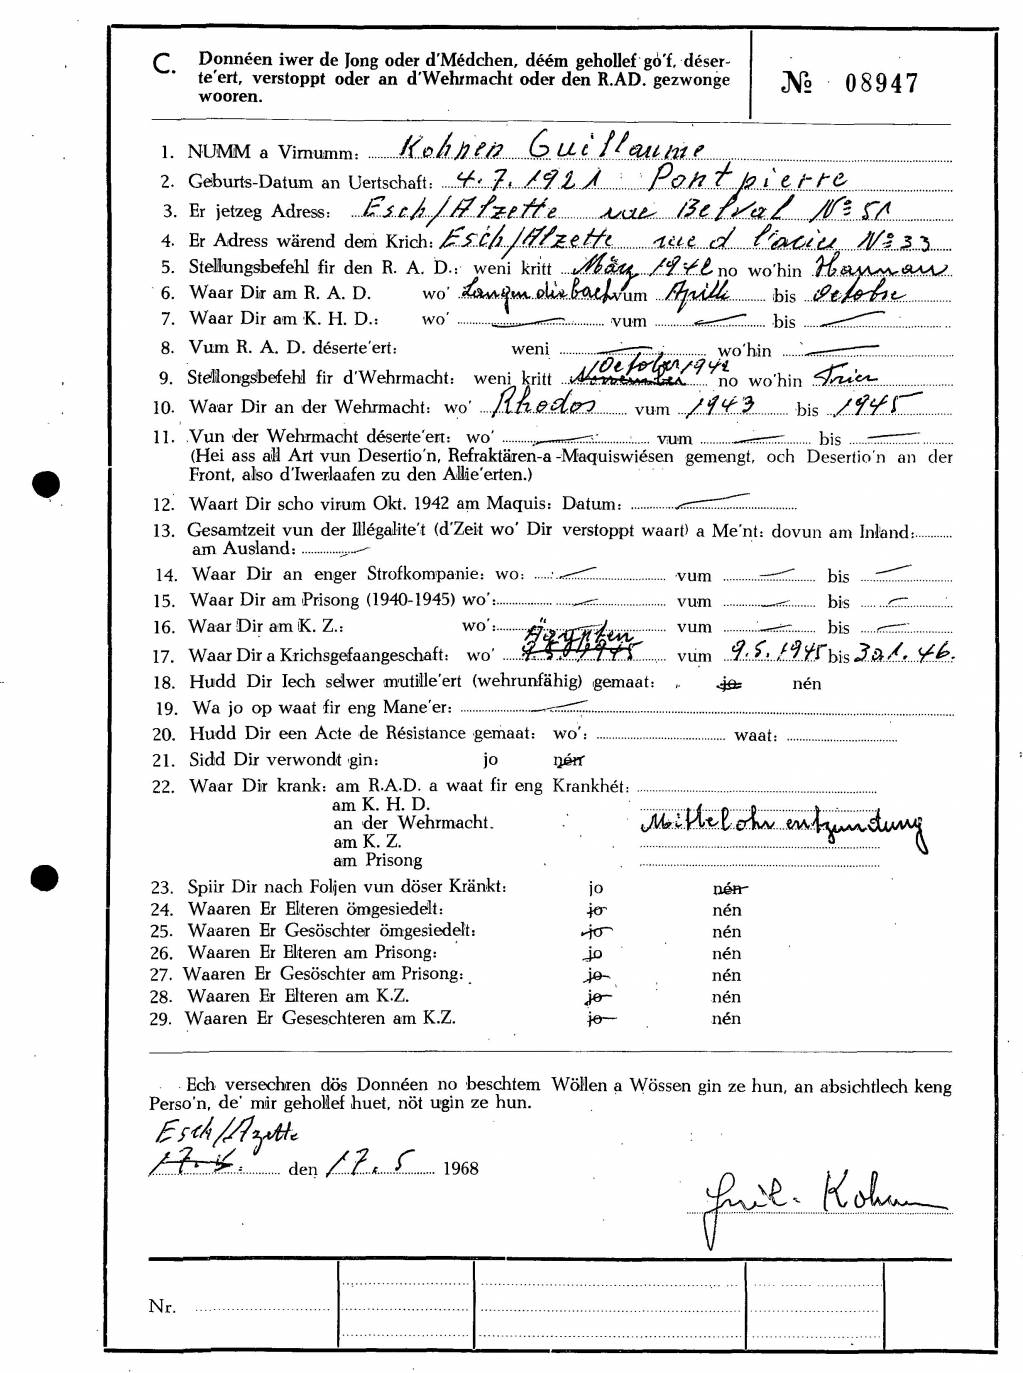 C. Donnéen iwer de Jong oder d'Médchen, déém gehollef gó'f, déser-
te'ert, verstoppt oder an d'Wehrmacht oder den R.AD. gezwonge
wooren.
№ 08947
1. NUMM a Virnumm: Kohnen Guillaume
2. Geburts-Datum an Uertschaft: 4.7.1921 Pontpierre
3. Er jetzeg Adress: Esch/Alzette rue Belval N° 51
4. Er Adress wärend dem Krich: Esch/Alzette rue d l'acier N° 33
5. Stellungsbefehl fir den R. A. D.: weni kritt März 1942 no wo'hin Hannau
6. Waar Dir am R. A. D. wo' Langendiebach vum Aprill bis Octobre
7. Waar Dir am K. H. D.: wo' — vum — bis —
8. Vum R. A. D. déserte'ert: weni — wo'hin —
October 1942
9. Stellongsbefehl fir d'Wehrmacht: weni kritt November no wo'hin Trier
10. Waar Dir an der Wehrmacht: wo' Rhodos vum 1943 bis 1945
11. Vun der Wehrmacht déserte'ert: wo' — vum — bis —
(Hei ass all Art vun Desertio'n, Refraktären-a-Maquiswiésen gemengt, och Desertio'n an der
Front, also d'Iwerlaafen zu den Allie'erten.)
12. Waart Dir scho virum Okt. 1942 am Maquis: Datum: —
13. Gesamtzeit vun der Illégalite't (d'Zeit wo' Dir verstoppt waart) a Me'nt: dovun am Inland:
am Ausland: —
14. Waar Dir an enger Strofkompanie: wo: — vum — bis —
15. Waar Dir am Prisong (1940-1945) wo': — vum — bis —
16. Waar Dir am K. Z.: wo': — vum — bis —
Ägypten
17. Waar Dir a Krichsgefaangeschaft: wo' 9.5.1945 vum 9.5.1945 bis 30.1.46.
18. Hudd Dir Iech selwer mutille'ert (wehrunfähig) gemaat: jo nén
19. Wa jo op waat fir eng Mane'er: —
20. Hudd Dir een Acte de Résistance gemaat: wo': waat:
21. Sidd Dir verwondt gin: jo nén
22. Waar Dir krank: am R.A.D. a waat fir eng Krankhét:
am K. H. D.
an der Wehrmacht. Mittelohrentzundung
am K. Z.
am Prisong
23. Spiir Dir nach Foljen vun döser Kränkt: jo nén
24. Waaren Er Elteren ömgesiedelt: jo nén
25. Waaren Er Gesöschter ömgesiedelt: jo nén
26. Waaren Er Elteren am Prisong: jo nén
27. Waaren Er Gesöschter am Prisong: jo nén
28. Waaren Er Elteren am K.Z. jo nén
29. Waaren Er Geseschteren am K.Z. jo nén
Ech versechren dös Donnéen no beschtem Wöllen a Wössen gin ze hun, an absichtlech keng
Perso'n, de' mir gehollef huet, nöt ugin ze hun.
Esch/Azette
17. den 17. 5 1968
Guil. Kohnen
Nr.